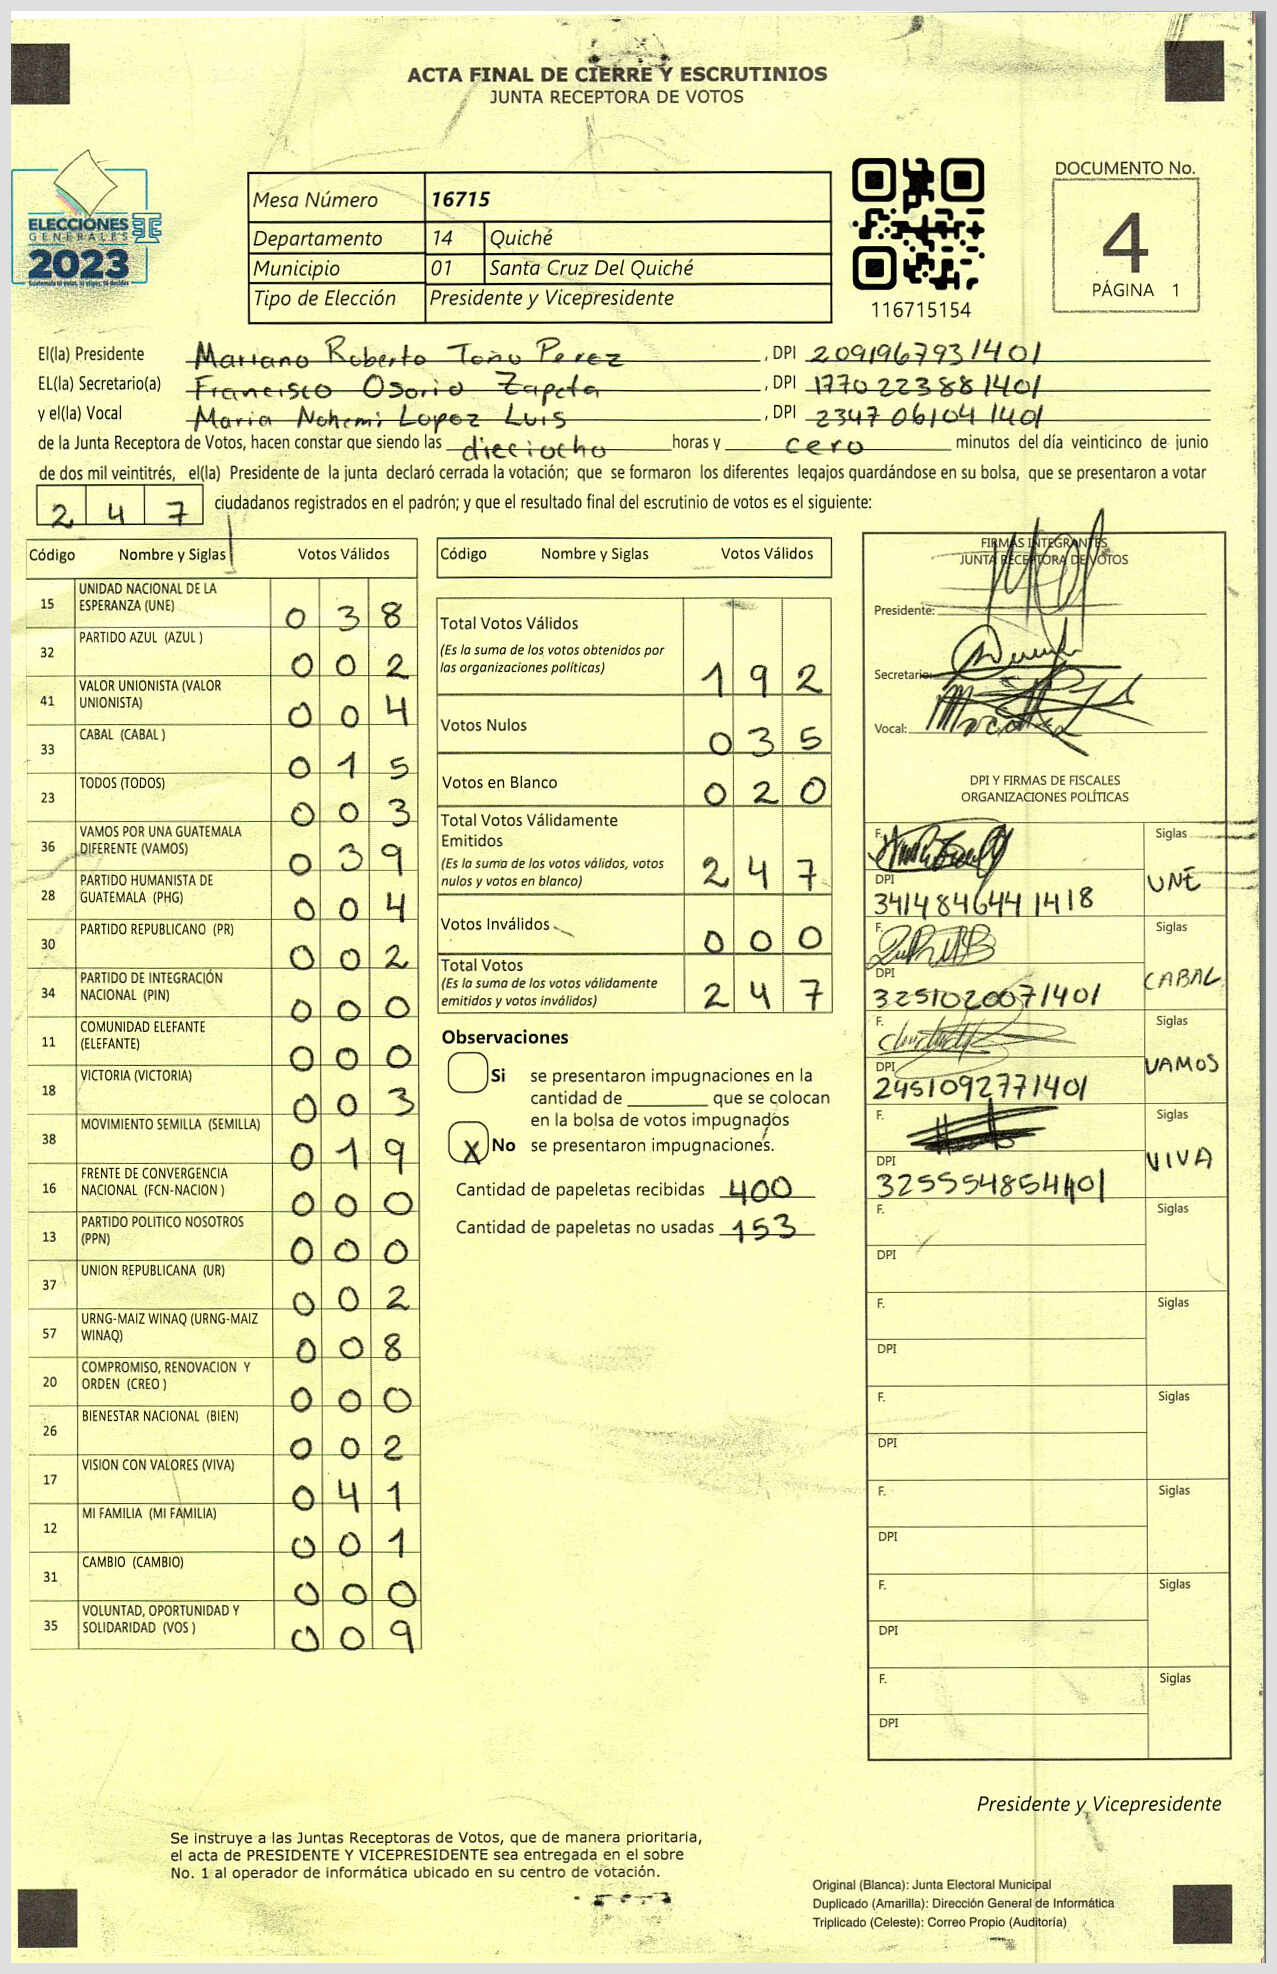 ACTA FINAL DE CIERRE Y ESCRUTINIOS
JUNTA RECEPTORA DE VOTOS
ELECCIONES
GENERALES
2023
Mesa Número 16715
Departamento 14 Quiché
Municipio 01 Santa Cruz Del Quiché
Tipo de Elección Presidente y Vicepresidente
116715154
DOCUMENTO No.
4
PÁGINA 1
El(la) Presidente Mariano Roberto Toño Perez, DPI 2091967931401
EL(la) Secretario(a) Francisco Osorio Zapeta, DPI 1770223881401
y el(la) Vocal Maria Nohemi Lopez Luis, DPI 2347061041401
de la Junta Receptora de Votos, hacen constar que siendo las dieciocho horas y cero minutos del día veinticinco de junio
de dos mil veintitrés, el(la) Presidente de la junta declaró cerrada la votación; que se formaron los diferentes legajos guardándose en su bolsa, que se presentaron a votar
2 4 7 ciudadanos registrados en el padrón; y que el resultado final del escrutinio de votos es el siguiente:
Código Nombre y Siglas Votos Válidos
15 UNIDAD NACIONAL DE LA
ESPERANZA (UNE) 0 3 8
32 PARTIDO AZUL (AZUL ) 0 0 2
41 VALOR UNIONISTA (VALOR
UNIONISTA) 0 0 4
33 CABAL (CABAL ) 0 1 5
23 TODOS (TODOS) 0 0 3
36 VAMOS POR UNA GUATEMALA
DIFERENTE (VAMOS) 0 3 9
28 PARTIDO HUMANISTA DE
GUATEMALA (PHG) 0 0 4
30 PARTIDO REPUBLICANO (PR) 0 0 2
34 PARTIDO DE INTEGRACIÓN
NACIONAL (PIN) 0 0 0
11 COMUNIDAD ELEFANTE
(ELEFANTE) 0 0 0
18 VICTORIA (VICTORIA) 0 0 3
38 MOVIMIENTO SEMILLA (SEMILLA) 0 1 9
16 FRENTE DE CONVERGENCIA
NACIONAL (FCN-NACION ) 0 0 0
13 PARTIDO POLITICO NOSOTROS
(PPN) 0 0 0
37 UNION REPUBLICANA (UR) 0 0 2
57 URNG-MAIZ WINAQ (URNG-MAIZ
WINAQ) 0 0 8
20 COMPROMISO, RENOVACION Y
ORDEN (CREO ) 0 0 0
26 BIENESTAR NACIONAL (BIEN) 0 0 2
17 VISION CON VALORES (VIVA) 0 4 1
12 MI FAMILIA (MI FAMILIA) 0 0 1
31 CAMBIO (CAMBIO) 0 0 0
35 VOLUNTAD, OPORTUNIDAD Y
SOLIDARIDAD (VOS ) 0 0 9
Código Nombre y Siglas Votos Válidos
Total Votos Válidos
(Es la suma de los votos obtenidos por
las organizaciones políticas) 1 9 2
Votos Nulos 0 3 5
Votos en Blanco 0 2 0
Total Votos Válidamente
Emitidos
(Es la suma de los votos válidos, votos
nulos y votos en blanco) 2 4 7
Votos Inválidos 0 0 0
Total Votos
(Es la suma de los votos válidamente
emitidos y votos inválidos) 2 4 7
Observaciones
Si se presentaron impugnaciones en la
cantidad de ________ que se colocan
en la bolsa de votos impugnados
X No se presentaron impugnaciones.
Cantidad de papeletas recibidas 400
Cantidad de papeletas no usadas 153
FIRMAS INTEGRANTES
JUNTA RECEPTORA DE VOTOS
Presidente:
Secretario:
Vocal:
DPI Y FIRMAS DE FISCALES
ORGANIZACIONES POLÍTICAS
F. Siglas
UNE
DPI
3414846441418
F. Siglas
CABAL
DPI
3251020071401
F. Siglas
VAMOS
DPI
2451092771401
F. Siglas
VIVA
DPI
F. Siglas
DPI
F. Siglas
DPI
F. Siglas
DPI
F. Siglas
DPI
F. Siglas
DPI
F. Siglas
DPI
Presidente y Vicepresidente
Se instruye a las Juntas Receptoras de Votos, que de manera prioritaria,
el acta de PRESIDENTE Y VICEPRESIDENTE sea entregada en el sobre
No. 1 al operador de informática ubicado en su centro de votación.
Original (Blanca): Junta Electoral Municipal
Duplicado (Amarilla): Dirección General de Informática
Triplicado (Celeste): Correo Propio (Auditoría)